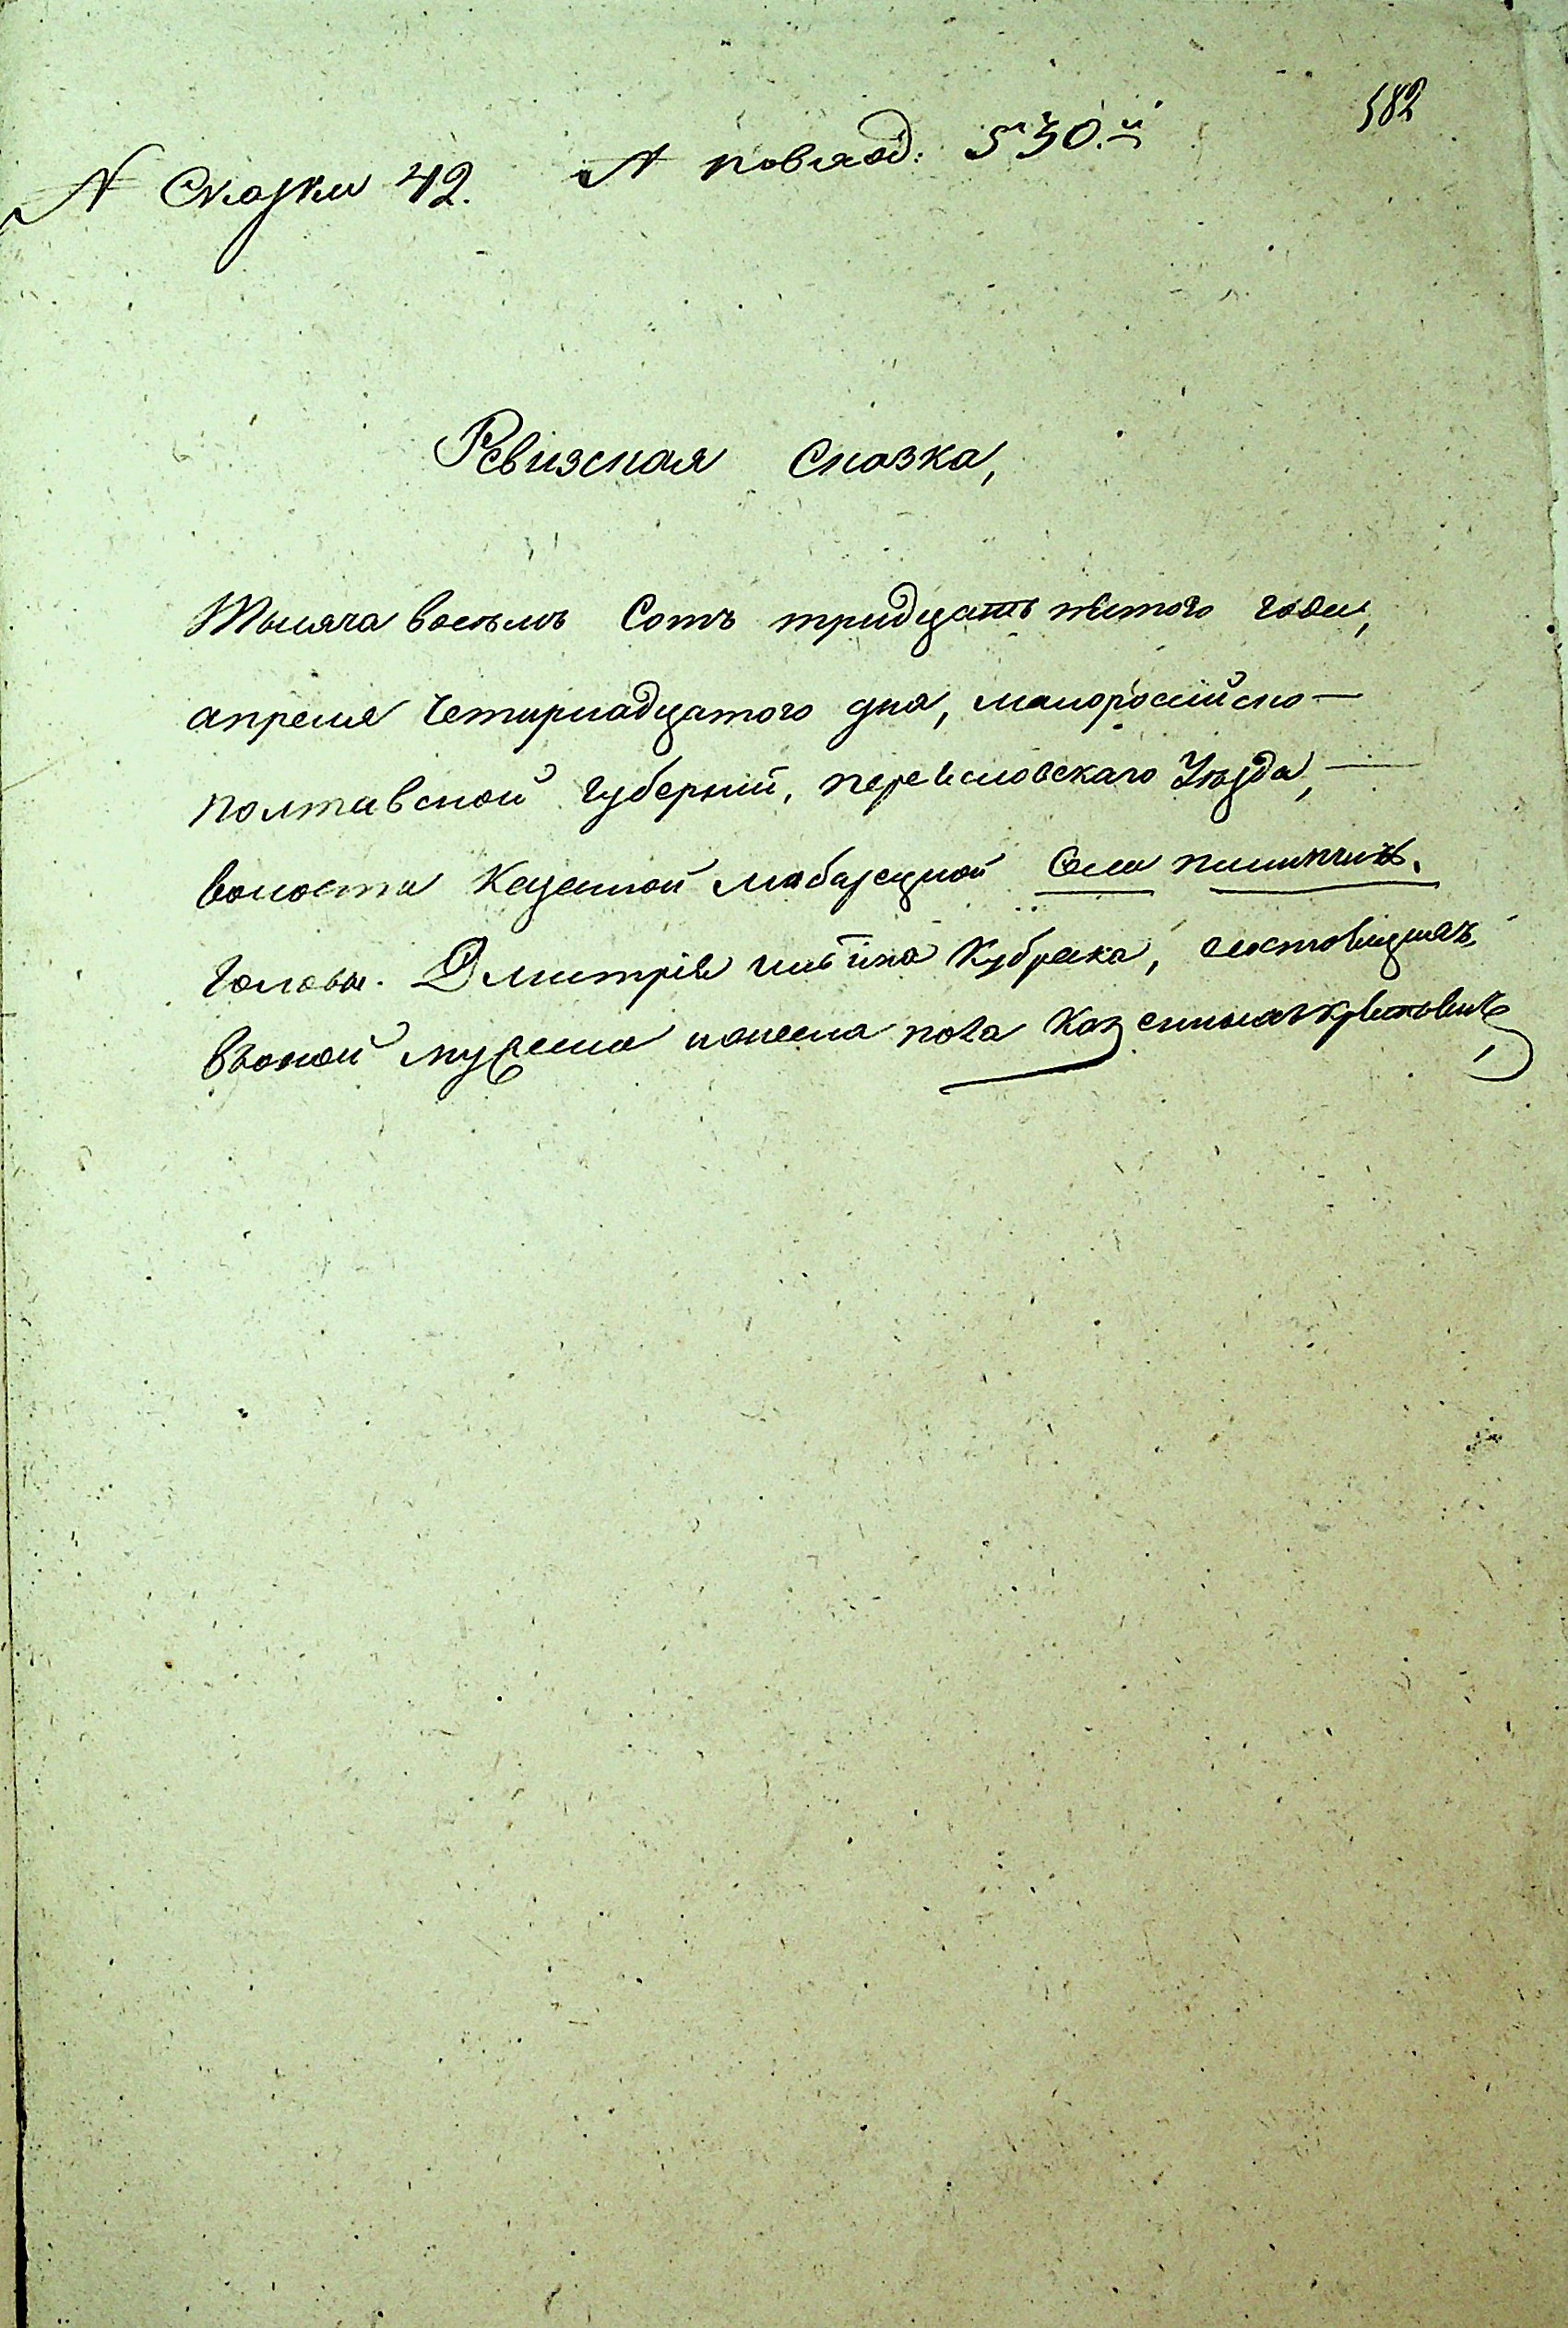 582
№ Сказки 42. № повляд: 530.й
Ревизская Сказка,
Тысяча восемъ Сотъ тридцать пятого года,
апреля Четирнадцатого дня, малоросійско-
полтавской Губерніи, переяславского Уезда,
волости Казенной Села
Головы. Дмитрія Кубрака, состоящихъ
вьоной мужеска иженска пола Казенныхъ крестьянъ,